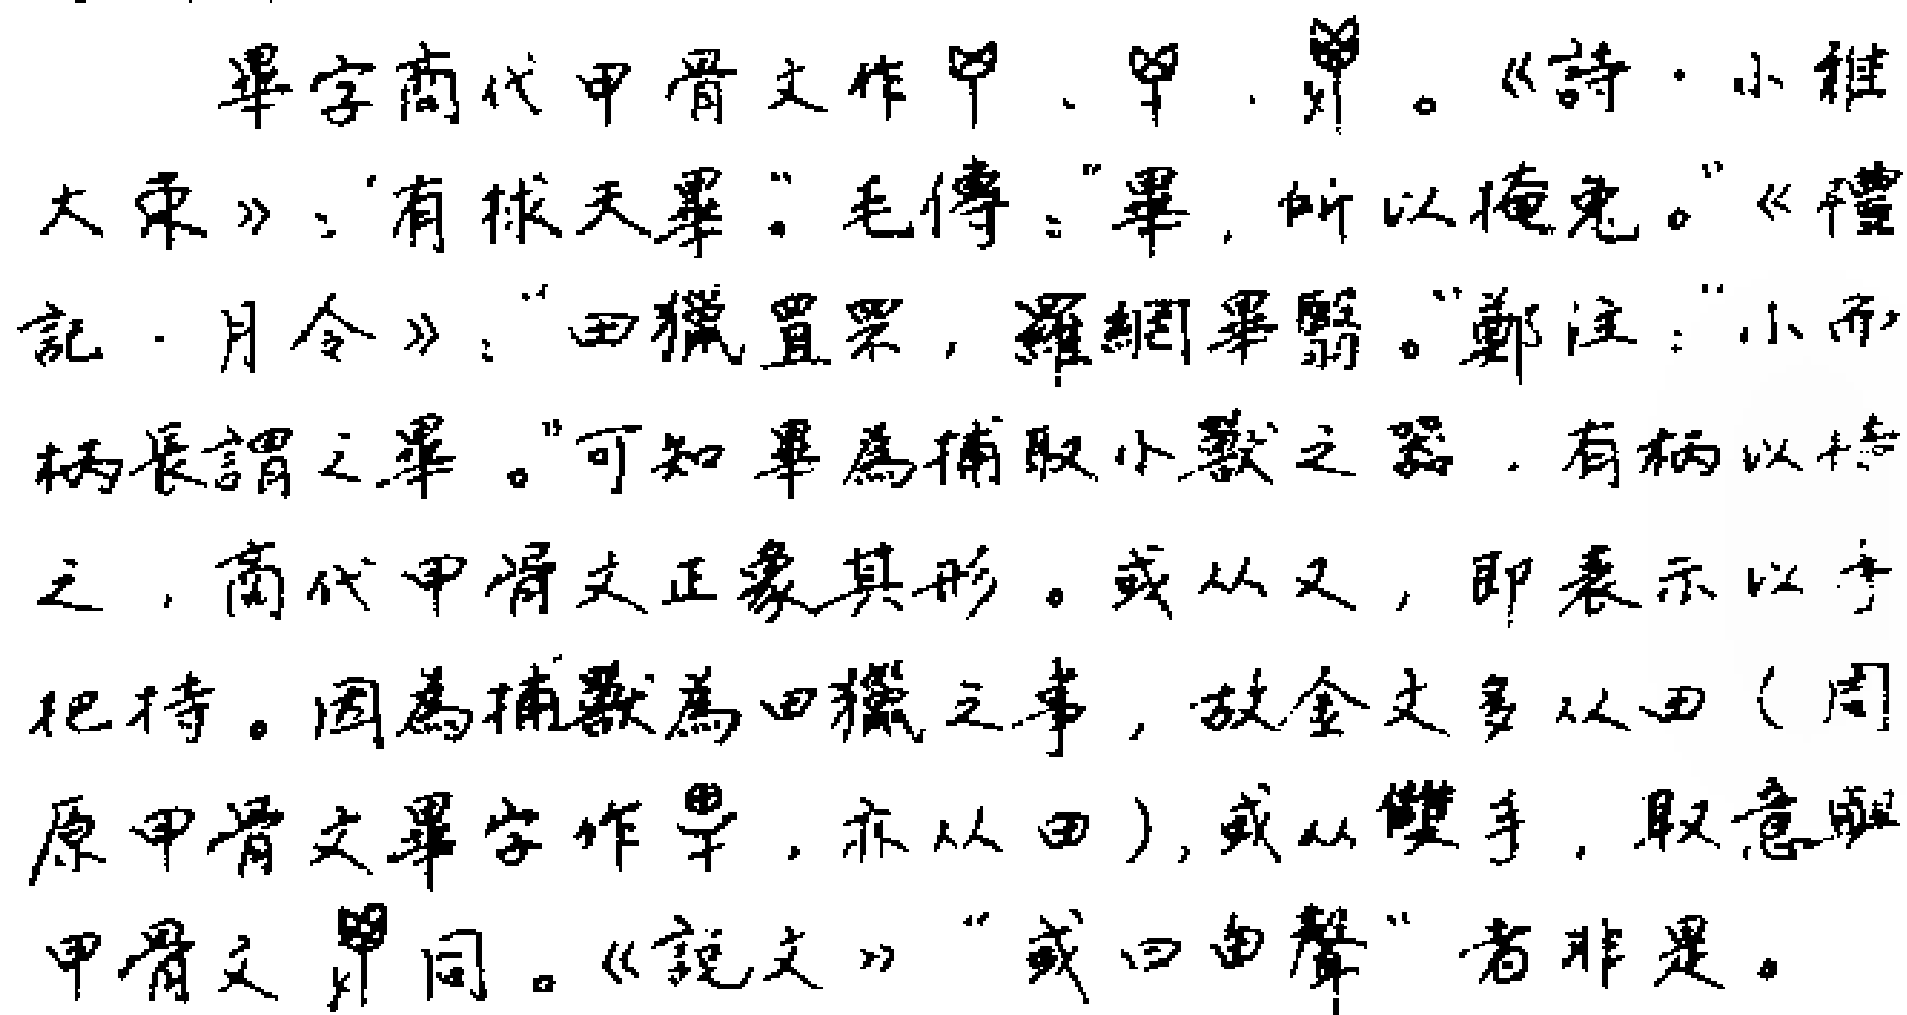 畢字商代甲骨文作、、。《詩·小雅
大東》：“有捄天畢。”毛傳：“畢，所以掩兔。”《禮
記·月令》：“田獵罝罘，羅網畢翳。”鄭注：“小而
柄長謂之畢。”可知畢為捕取小獸之器，有柄以持
之，商代甲骨文正象其形。或从又，即表示以手
把持。因為捕獸為田獵之事，故金文多从田（周
原甲骨文畢字作，亦从田），或从雙手，取意與
甲骨文同。《說文》“或曰由聲”者非是。